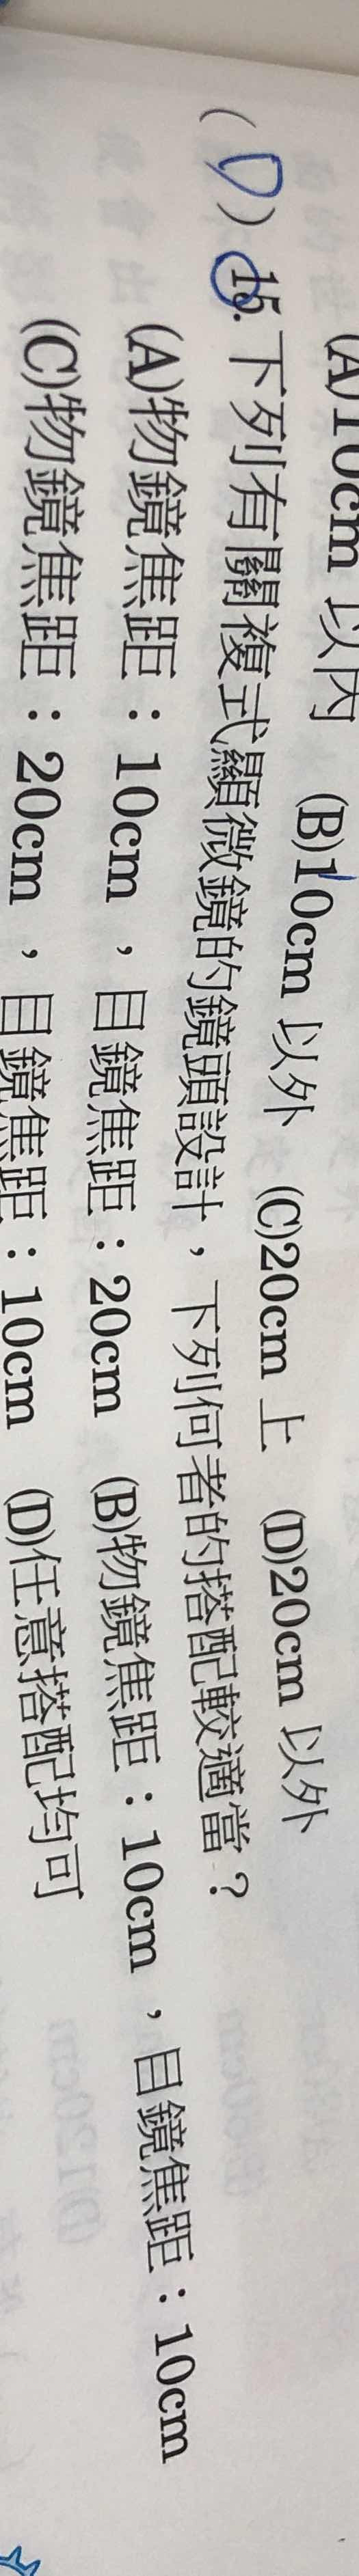 (A)10cm 以內 (B)10cm 以外 (C)20cm 上 (D)20cm 以外
(D) 15.下列有關複式顯微鏡的鏡頭設計，下列何者的搭配較適當？
(A)物鏡焦距：10cm，目鏡焦距：20cm (B)物鏡焦距：10cm，目鏡焦距：10cm
(C)物鏡焦距：20cm，目鏡焦距：10cm (D)任意搭配均可